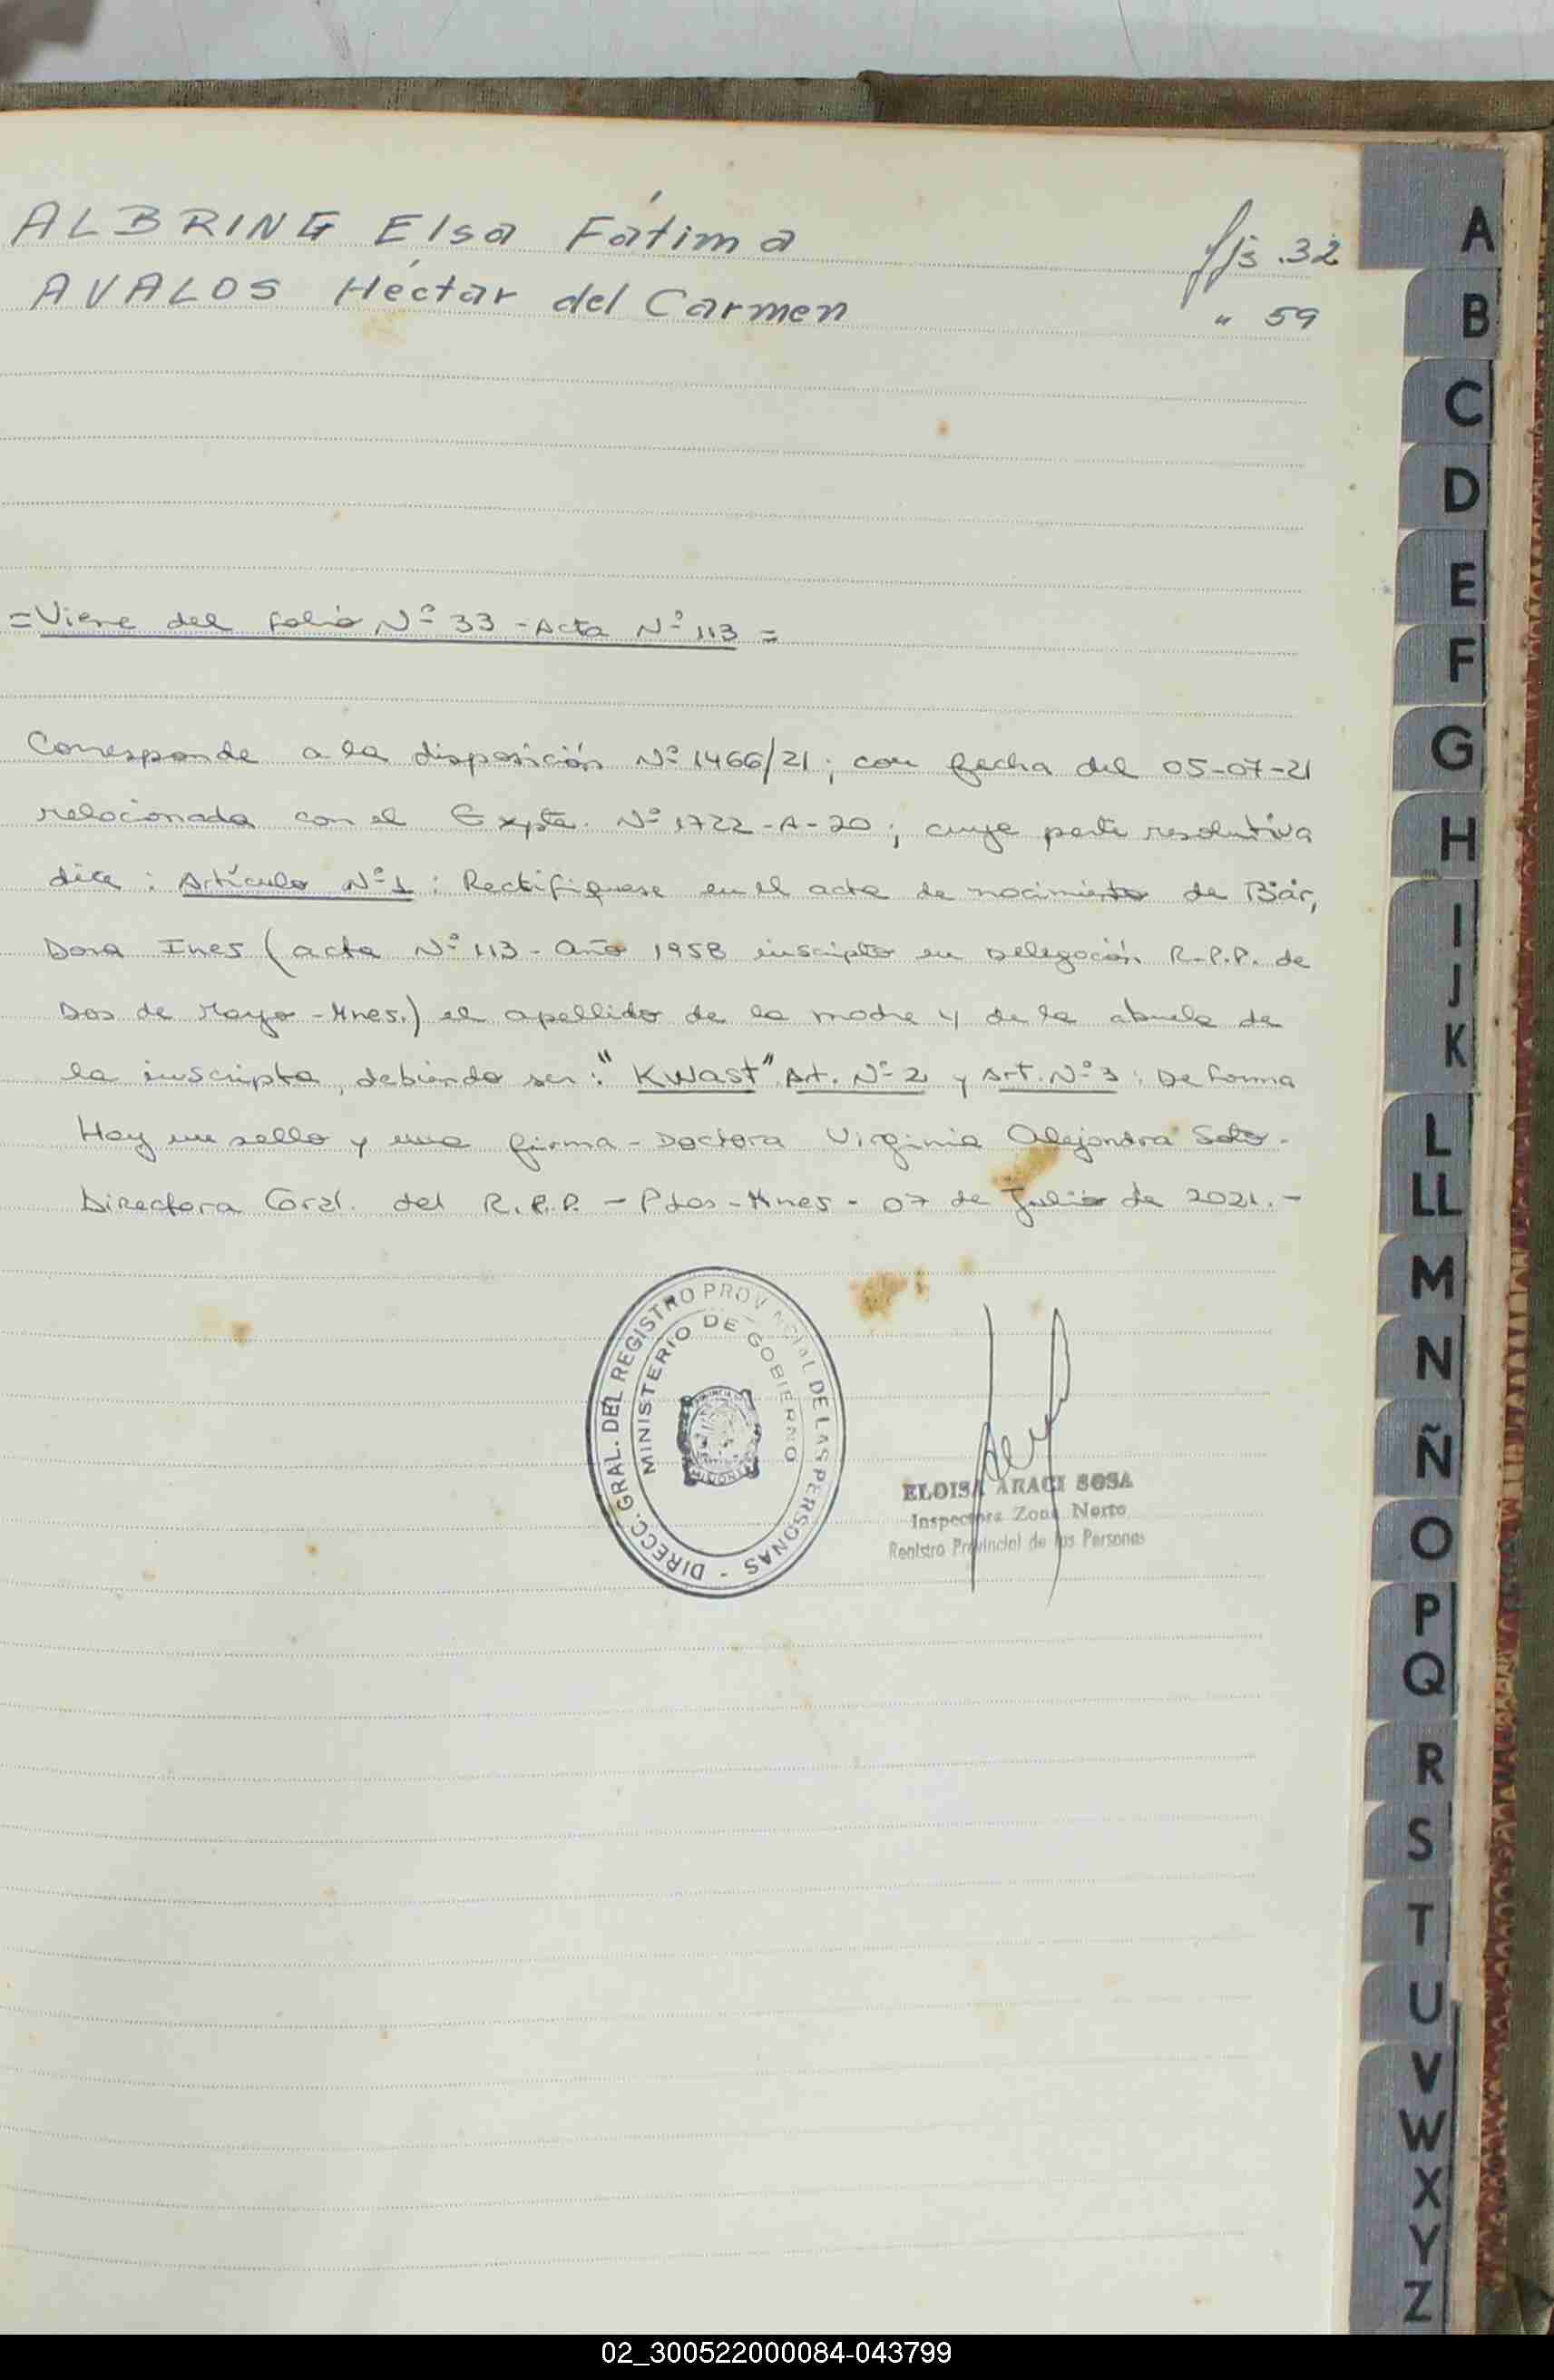 ALBRING Elsa Fátima fjs. 32
AVALOS Héctar del Carmen " 59
=Viene del folio Nº 33 - Acta Nº 113 =
Corresponde a la disposición Nº 1466/21; con fecha del 05-07-21
relacionada con el Expte. Nº 1722-A-20; cuya parte resolutiva
dice: Artículo Nº 1: Rectifiquese en el acta de nacimiento de Bär,
Dora Ines (acta Nº 113 - Año 1958 inscripto en Delegación R.P.P. de
Dos de Mayo - Mnes.) el apellido de la madre y de la abuela de
la inscripta, debiendo ser: "Kwast". Art. Nº 2 y Art. Nº 3: De forma
Hay un sello y una firma - Doctora Virginia Alejandra Soto -
Directora Gral. del R.P.P. - Pdas - Mnes - 07 de Julio de 2021.-
DIRECC. GRAL. DEL REGISTRO PROVINCIAL DE LAS PERSONAS -
MINISTERIO DE GOBIERNO
MISIONES
ELOISA ARACI SOSA
Inspectora Zona Norte
Registro Provincial de las Personas
A
B
C
D
E
F
G
H
I
J
K
L
LL
M
N
Ñ
O
P
Q
R
S
T
U
V
W
X
Y
Z
02_300522000084-043799